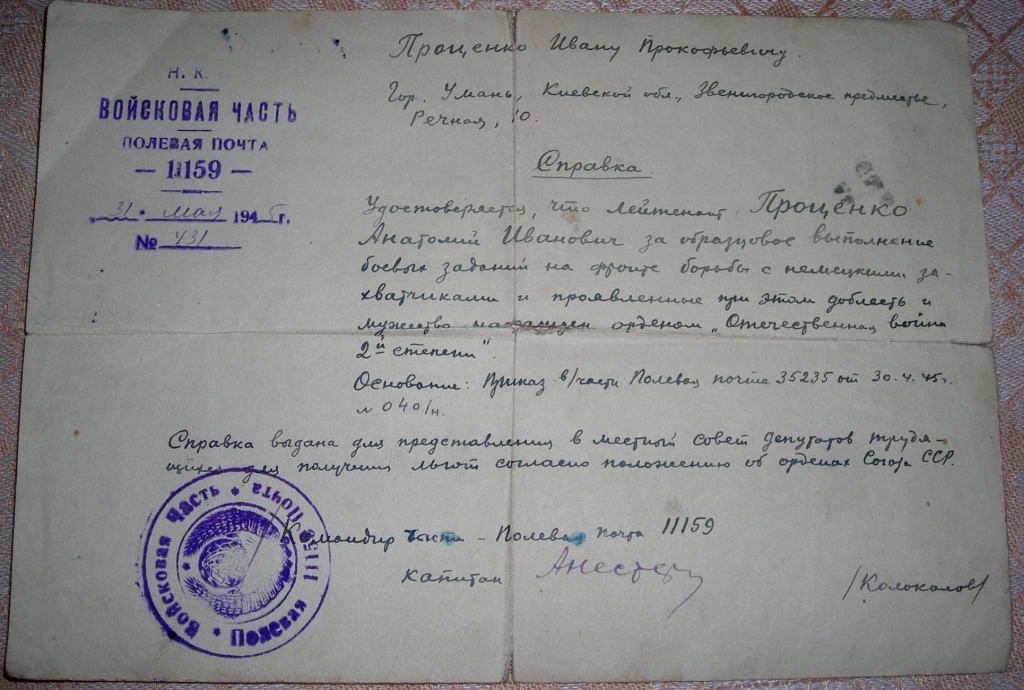 Н. К.
ВОЙСКОВАЯ ЧАСТЬ
ПОЛЕВАЯ ПОЧТА
— 11159 —
31 • мая 1945 г.
№ 431
Проценко Ивану Прокофьевичу.
Гор. Умань, Киевской обл., Звенигородское предместье,
Речная, 10.
Справка.
Удостоверяется, что лейтенант Проценко
Анатолий Иванович за образцовое выполнение
боевых заданий на фронте борьбы с немецкими за-
хватчиками и проявленные при этом доблесть и
мужество награжден орденом „Отечественная война
2й степени".
Основание: Приказ в/части Полевая почта 35235 от 30.4.45 г.
№ 040/н.
Справка выдана для представления в местный совет депутатов трудя-
щихся для получения льгот согласно положению об орденах Союза ССР.
Командир части - Полевая почта 11159
Капитан
/Колоколов/
Войсковая Часть * Полевая Почта 11159 *